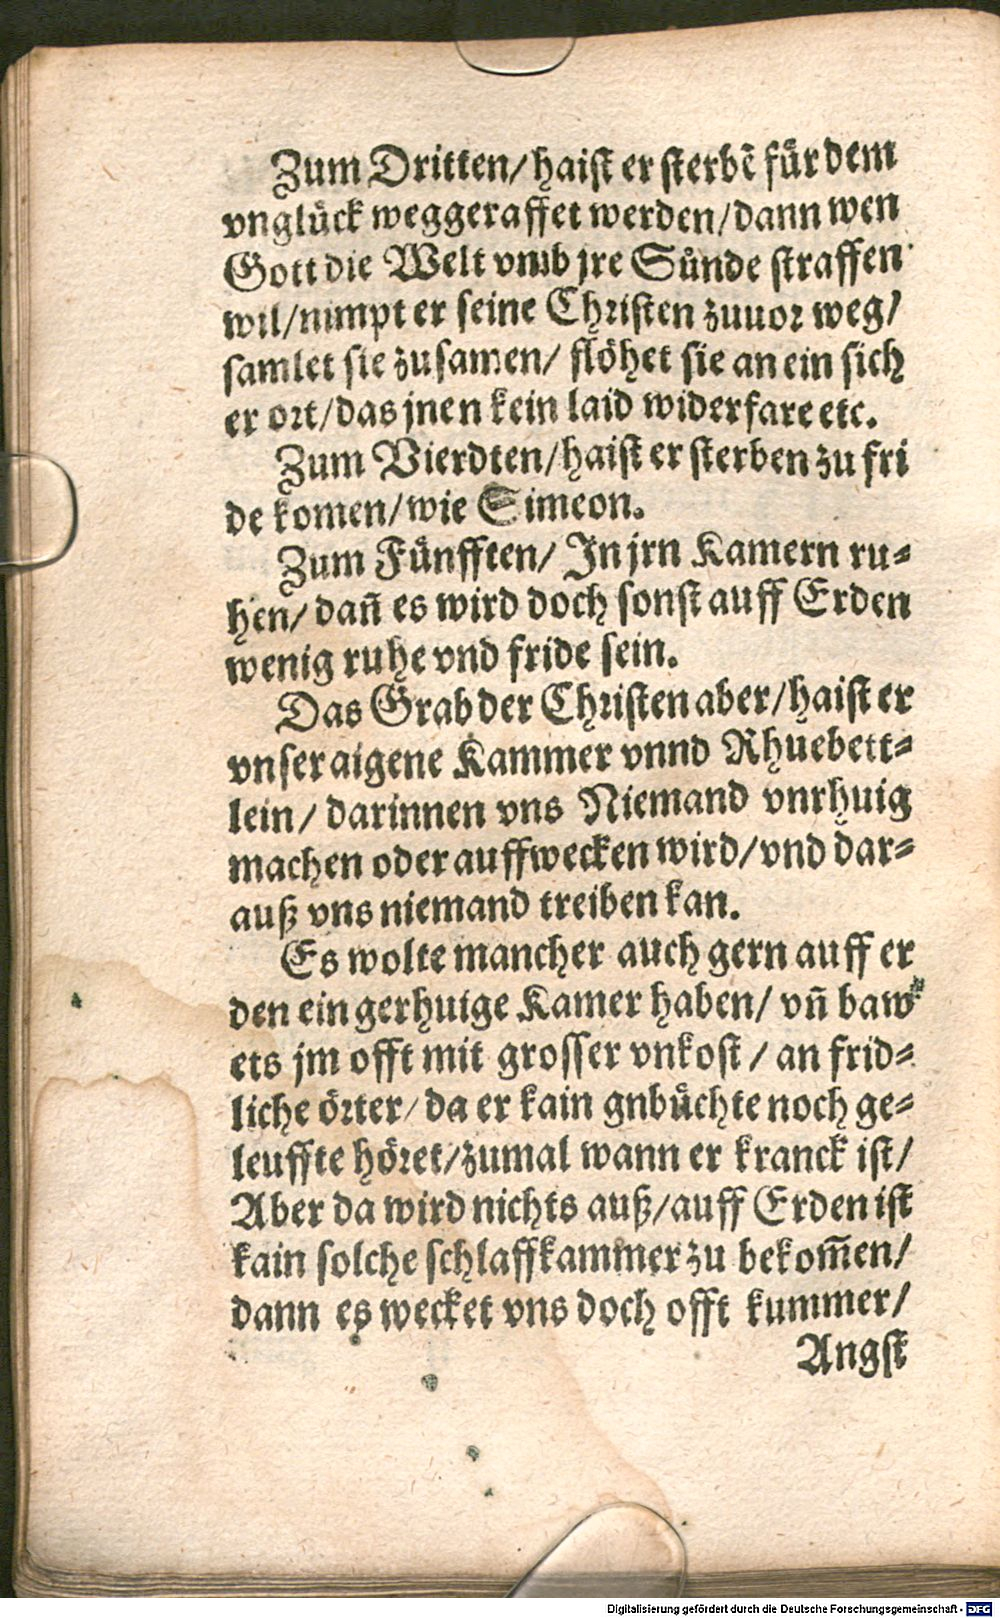 Zum Dritten/ haist er sterbē für dem
vnglück weggeraffet werden/ dann wen
Gott die Welt vmb jre Sünde straffen
wil/ nimpt er seine Christen zuuor weg/
samlet sie zusamen/ flöhet sie an ein sich
er ort/ das jnen kein laid widerfare etc.
Zum Vierdten/ haist er sterben zu fri
de komen/ wie Simeon.
Zum Fünfften/ In jrn Kamern ru-
hen/ dañ es wird doch sonst auff Erden
wenig ruhe vnd fride sein.
Das Grab der Christen aber/ haist er
vnser aigene Kammer vnnd Rhuebett-
lein/ darinnen vns Niemand vnrhuig
machen oder auffwecken wird/ vnd dar-
auß vns niemand treiben kan.
Es wolte mancher auch gern auff er
den ein gerhuige Kamer haben/ vñ baw-
ets jm offt mit grosser vnkost/ an frid-
liche örter/ da er kain gnbüchte noch ge-
leuffte höret/ zumal wann er kranck ist/
Aber da wird nichts auß/ auff Erden ist
kain solche schlaffkammer zu bekom̃en/
dann es wecket vns doch offt kummer/
Angst
Digitalisierung gefördert durch die Deutsche Forschungsgemeinschaft - DFG